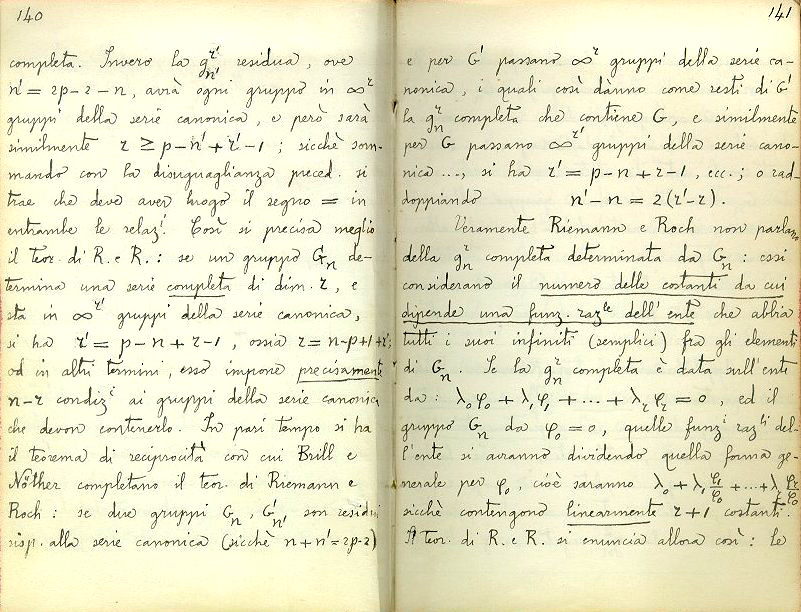 140
completa. Invero la g^{r'}_{n'} residua, ove
n' = 2p-2-n, avrà ogni gruppo in ∞^r
gruppi della serie canonica, e però sarà
similmente r ≥ p-n'+r'-1 ; sicchè som-
mando con la disuguaglianza preced. si
trae che deve aver luogo il segno = in
entrambe le relaz.ⁱ Così si precisa meglio
il teor. di R. e R. : se un gruppo G_n de-
termina una serie completa di dim. r, e
sta in ∞^{r'} gruppi della serie canonica,
si ha r' = p-n+r-1, ossia r = n-p+1+r';
od in altri termini, esso impone precisamente
n-r condizⁱ ai gruppi della serie canonica
che devon contenerlo. In pari tempo si ha
il teorema di reciprocità con cui Brill e
Nöther completano il teor. di Riemann e
Roch : se due gruppi G_n, G'_{n'} son residui
risp. alla serie canonica (sicchè n+n'=2p-2)
141
e per G' passano ∞^r gruppi della serie ca-
nonica, i quali così dànno come resti di G'
la g^r_n completa che contiene G, e similmente
per G passano ∞^{r'} gruppi della serie cano-
nica ..., si ha r' = p-n+r-1, ecc.; o rad-
doppiando n'-n = 2(r'-r).
Veramente Riemann e Roch non parlano
della g^r_n completa determinata da G_n : essi
considerano il numero delle costanti da cui
dipende una funz. raz^{le} dell'ente che abbia
tutti i suoi infiniti (semplici) fra gli elementi
di G_n. Se la g^r_n completa è data sull'ente
da : λ₀φ₀ + λ₁φ₁ + ... + λ_rφ_r = 0, ed il
gruppo G_n da φ₀ = 0, quelle funzⁱ raz^{li} del-
l'ente si avranno dividendo quella forma ge-
nerale per φ₀, cioè saranno λ₀ + λ₁ φ₁/φ₀ + ... + λ_r φ_r/φ₀
sicchè contengono linearmente r+1 costanti.
Il teor. di R. e R. si enuncia allora così : le